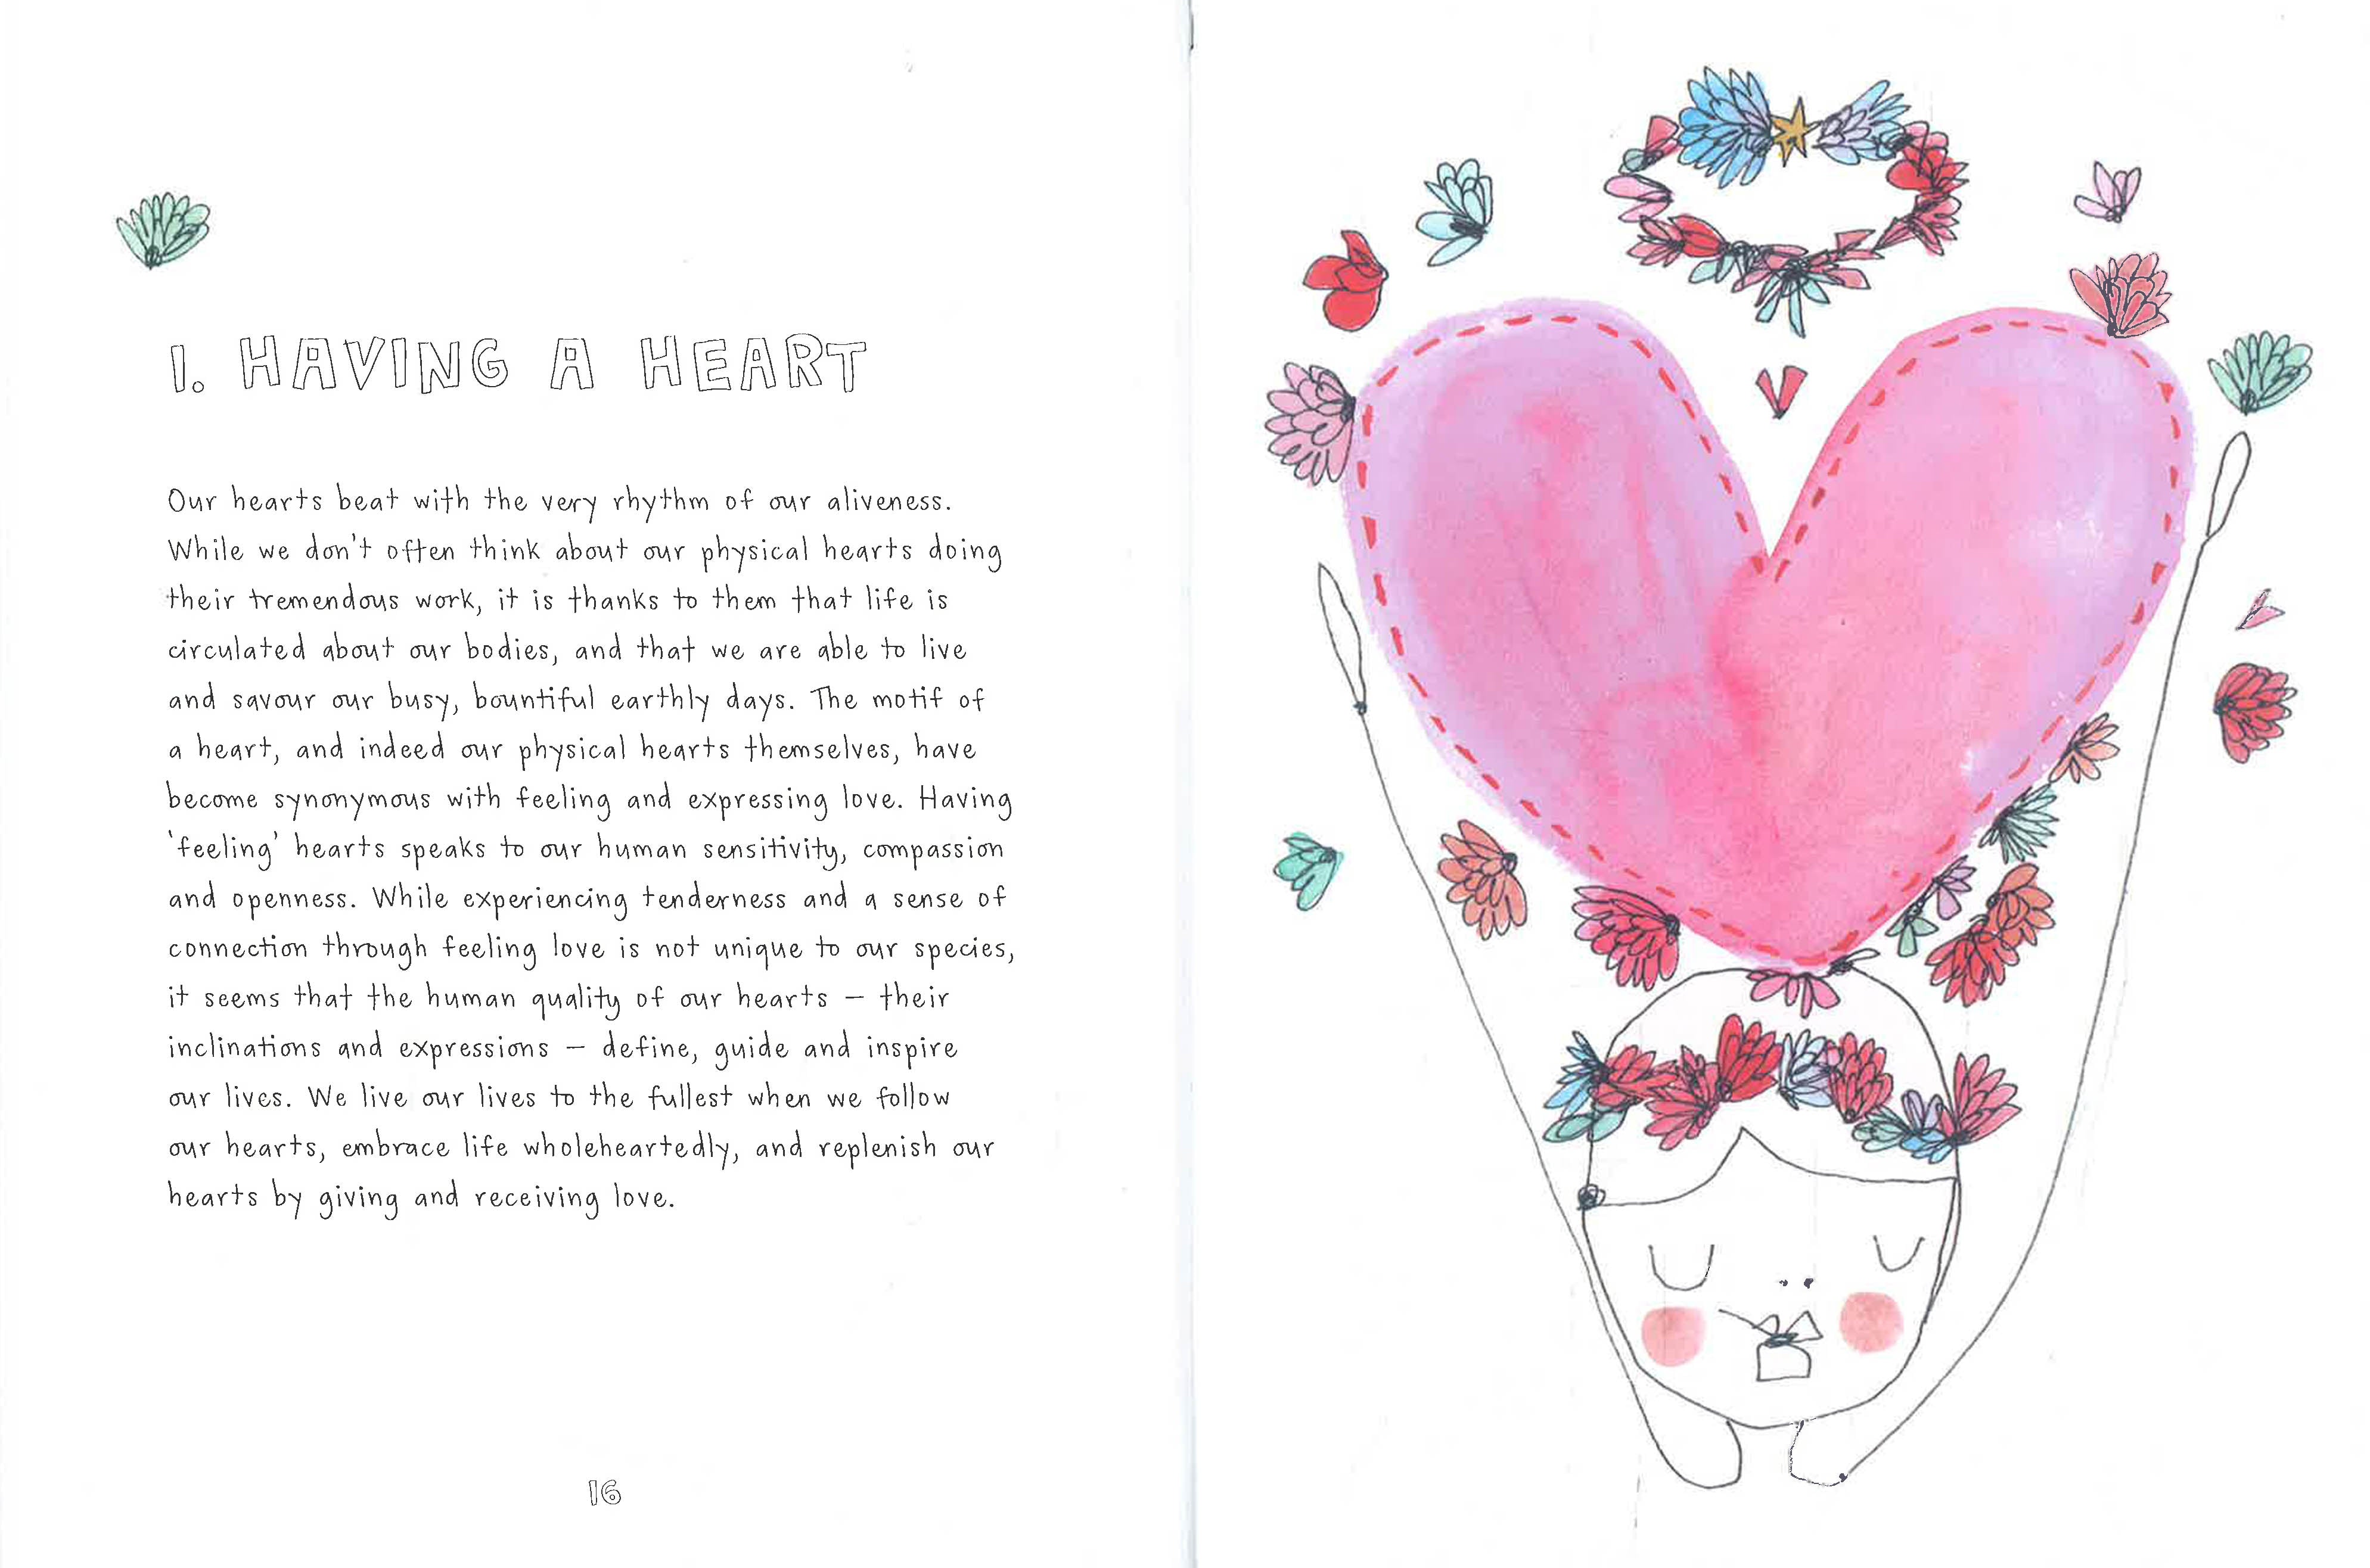 1. HAVING A HEART
Our hearts beat with the very rhythm of our aliveness.
While we don't often think about our physical hearts doing
their tremendous work, it is thanks to them that life is
circulated about our bodies, and that we are able to live
and savour our busy, bountiful earthly days. The motif of
a heart, and indeed our physical hearts themselves, have
become synonymous with feeling and expressing love. Having
'feeling' hearts speaks to our human sensitivity, compassion
and openness. While experiencing tenderness and a sense of
connection through feeling love is not unique to our species,
it seems that the human quality of our hearts – their
inclinations and expressions – define, guide and inspire
our lives. We live our lives to the fullest when we follow
our hearts, embrace life wholeheartedly, and replenish our
hearts by giving and receiving love.
16